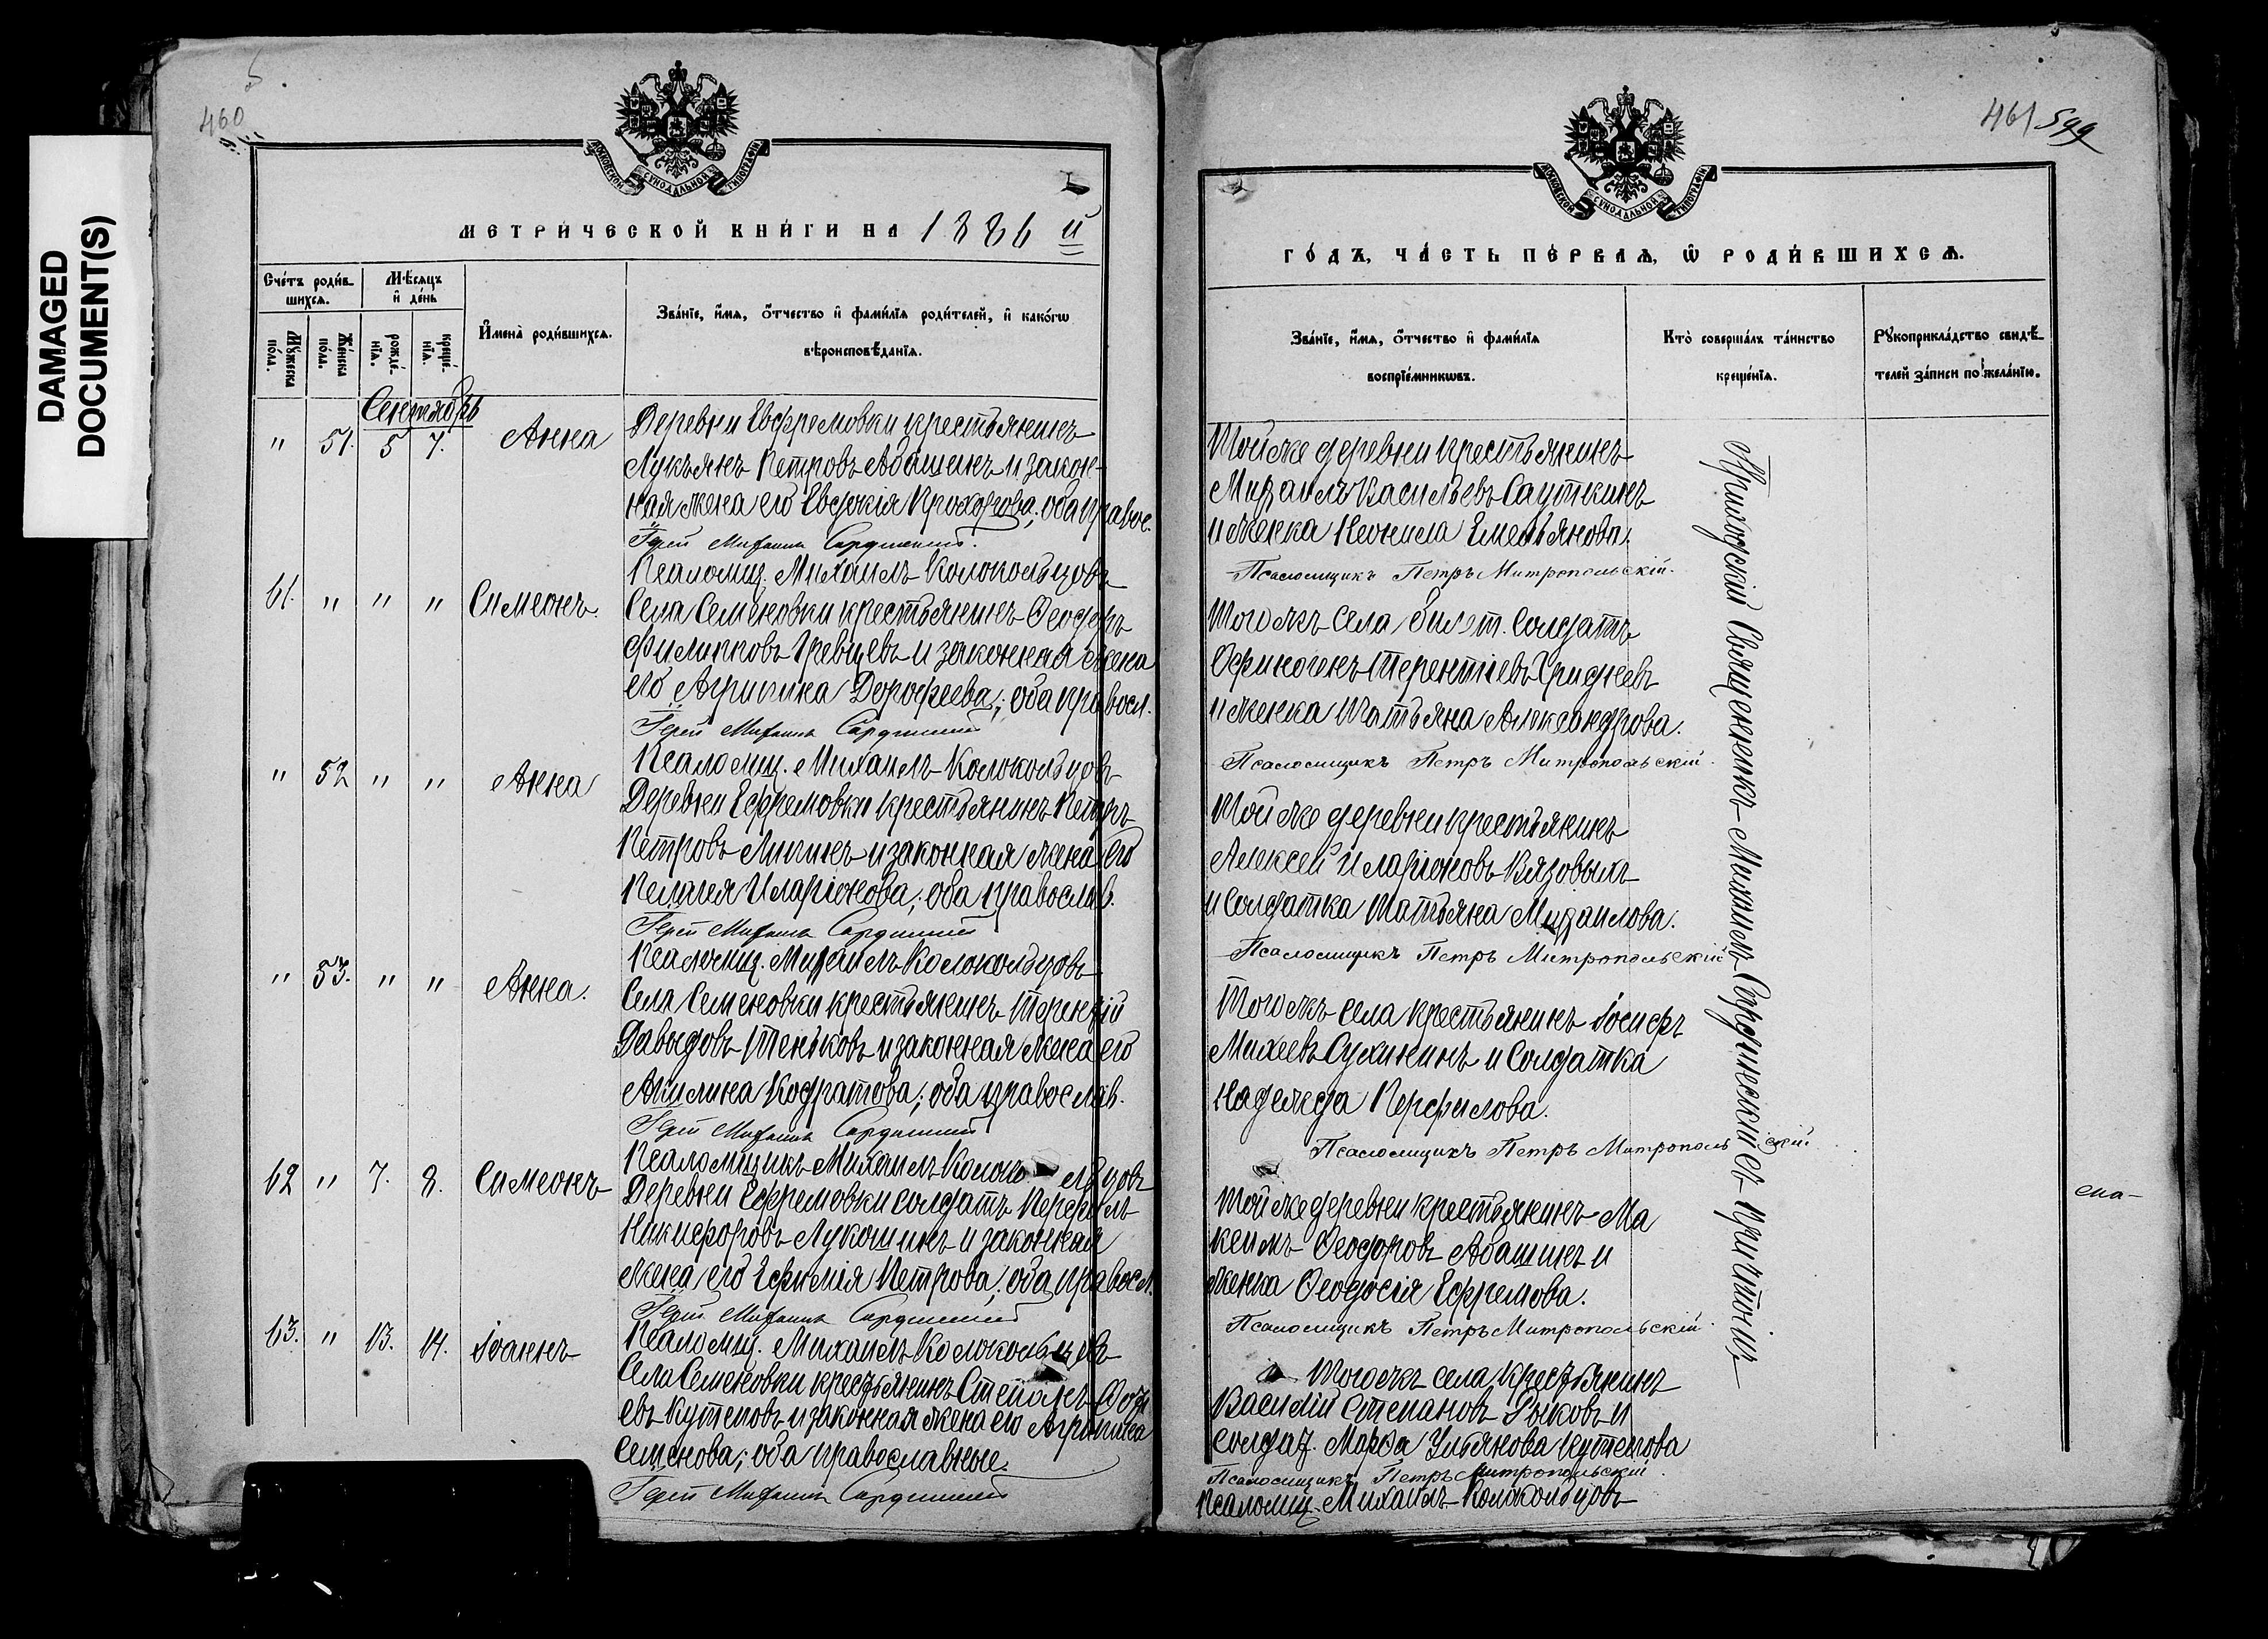 DAMAGED
DOCUMENT(S)
460
МОСКОВСКОЙ СѴНОДАЛЬНОЙ ТИПОГРАФІИ
МЕТРИЧЕСКОЙ КНИГИ НА 1886 й
Счетъ родившихся.
Мужеска пола.
Женска пола.
Мѣсяцъ и день
рожденія.
крещенія.
Имена родившихся.
Званіе, имя, отчество и фамилія родителей, и какогѡ
вѣроисповѣданія.
Сентябрь
" 51. 5 7. Анна
Деревни Евфремовки крестьянинъ
Лукъянъ Петровъ Абашинъ и закон-
ная жена его Евдокія Прохорова; оба правос.
Іерей Михаилъ Сардинскій.
Псаломщ. Михаилъ Колокольцовъ
61. " " " Симеонъ.
Села Семеновки крестьянинъ Ѳеодоръ
Филипповъ Гревцевъ и законная жена
его Агрипина Дорофеева; оба правосл.
Іерей Михаилъ Сардинскій
Псаломщ. Михаилъ Колокольцовъ
" 52 " " Анна
Деревни Ефремовки крестьянинъ Петръ
Петровъ Липинъ и законная жена его
Пелагея Иларіонова; оба православ.
Іерей Михаилъ Сардинскій
Псаломщ. Михаилъ Колокольцовъ
" 53. " " Анна.
Села Семеновки крестьянинъ Терентій
Давыдовъ Теньковъ и законная жена его
Акилина Кодратова; оба православ.
Іерей Михаилъ Сардинскій
Псаломщикъ Михаилъ Колоко льцовъ
62 " 7. 8. Симеонъ
Деревни Ефремовки солдатъ Перфилъ
Никифоровъ Лукошинъ и законная
жена его Ефимія Петрова; оба правосл.
Іерей Михаилъ Сардинскій
Псаломщ. Михаилъ Колокольцовъ
63. " 13. 14. Іоаннъ
Села Семеновки крестьянинъ Степанъ
евъ Кутеповъ и законная жена его Агрипина
Семенова; оба православные.
Іерей Михаилъ Сардинскій
461 599
МОСКОВСКОЙ СѴНОДАЛЬНОЙ ТИПОГРАФІИ
ГОДЪ, ЧАСТЬ ПЕРВАЯ, Ѡ РОДИВШИХСЯ.
Званіе, имя, отчество и фамилія
воспріемникѡвъ.
Кто совершалъ таинство
крещенія.
Рукоприкладство свидѣ-
телей записи по желанію.
Той же деревни крестьянинъ
Михаилъ Васильевъ Сауткинъ
и женка Неонила Емельянова.
Псаломщикъ Петръ Митропольскій.
Того жъ села билет. Солдатъ
Офиногенъ Терентіевъ Гридневъ
и женка Татьяна Александрова.
Псаломщикъ Петръ Митропольскій.
Той же деревни крестьянинъ
Алексей Иларіоновъ Вязовыхъ
и Солдатка Татьяна Михаилова.
Псаломщикъ Петръ Митропольскій
Того жъ села крестьянинъ Іосифъ
Михеевъ Сухининъ и Солдатка
Надежда Перфилова.
Псаломщикъ Петръ Митропольскій
Той же деревни крестьянинъ Ма
ксимъ Ѳеодоровъ Абашинъ и
женка Ѳеодосія Ефремова.
Псаломщикъ Петръ Митропольскій.
Того жъ села крестьянинъ
Василій Степановъ Рыковъ и
солдат. Марѳа Ульянова Кутепова
Псаломщикъ Петръ Митропольскій.
Псаломщ. Михаилъ Колокольцовъ
Приходскій Священникъ Михаилъ Сардинскій съ причтомъ